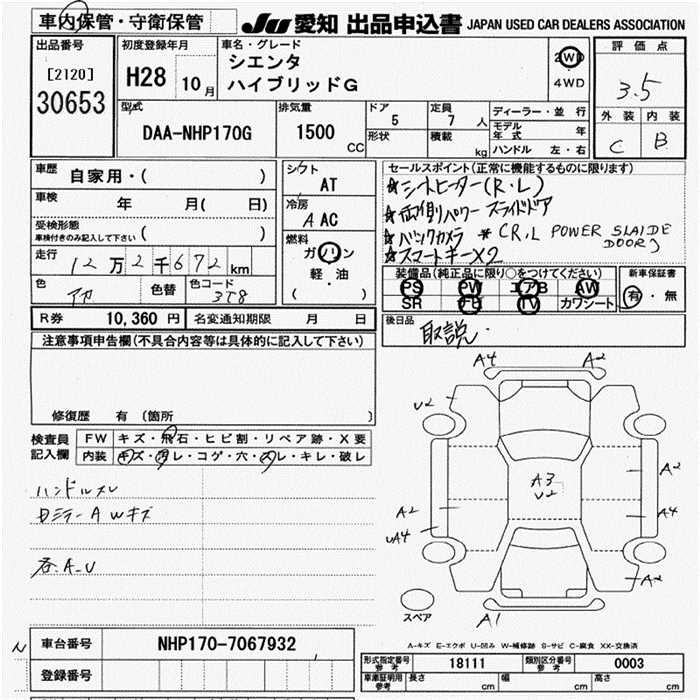 車内保管・守衛保管
JU 愛知 出品申込書 JAPAN USED CAR DEALERS ASSOCIATION
出品番号
[2120]
30653
初度登録年月
H28 10月
車名・グレード
シエンタ
ハイブリッドG
2WD
4WD
評価点
3.5
外装 内装
C B
型式
DAA-NHP170G
排気量
1500 CC
ドア
5
形状
定員
7 人
積載
kg
ディーラー・並行
モデル年式 年
ハンドル 左・右
車歴
自家用・( )
車検 年 月( 日)
受検形態
車検付きのみ記入して下さい ( )
走行 12万2千672km
色 アカ 色替 色コード 3T8
シフト
AT
冷房
A AC
燃料
ガソリン
軽・油
( )
セールスポイント(正常に機能するものに限ります)
★シートヒーター(R・L)
★両側パワースライドドア
★バックカメラ ※(R,L POWER SLAIDE DOOR)
★スマートキー×2
装備品(純正品に限り○をつけてください)
PS PW エアB AW
SR TV カワシート
新車保証書
有・無
R券 10,360 円 名変通知期限 月 日
後日品
取説・
注意事項申告欄(不具合内容等は具体的に記入して下さい)
修復歴 有(箇所 )
検査員記入欄
FW キズ・飛石・ヒビ割・リペア跡・X要
内装 キズ・汚レ・コゲ・穴・スレ・キレ・破レ
ハンドルスレ
各A.U
A4 A2
U2
A3
U2
A2
A2
A4
UA4
A2
A1
スペア
A-キズ E-エクボ U-凹み W-補修跡 S-サビ C-腐食 XX-交換済
車台番号 NHP170-7067932
登録番号
型式指定番号 参考 18111 類別区分番号 参考 0003
車庫証明用 参考 長さ cm 幅 cm 高さ cm